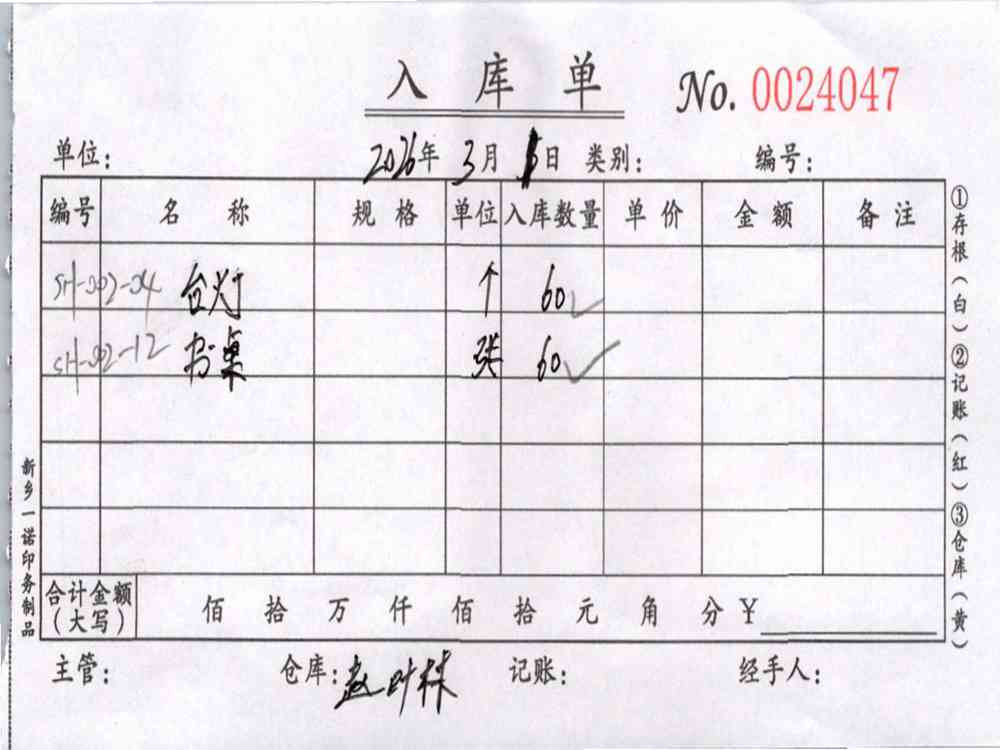 入库单 No. 0024047
单位： 2026年 3月 日 类别： 编号：
编号 名称 规格 单位 入库数量 单价 金额 备注
台灯 个 60
书桌 张 60
合计金额（大写） 佰 拾 万 仟 佰 拾 元 角 分 ￥
主管： 仓库：赵 林 记账： 经手人：
①存根（白）②记账（红）③仓库（黄）
新乡一诺印务制品